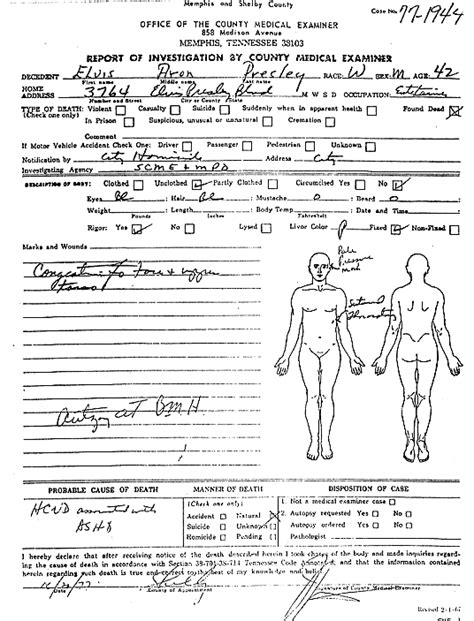 Memphis and Shelby County
Case No. 77-1944
OFFICE OF THE COUNTY MEDICAL EXAMINER
858 Madison Avenue
MEMPHIS, TENNESSEE 38103
REPORT OF INVESTIGATION BY COUNTY MEDICAL EXAMINER
DECEDENT Elvis Aron Presley RACE: W SEX: M AGE: 42
First name Middle name Last name
HOME ADDRESS 3764 Elvis Presley Blvd M W S D OCCUPATION:
Number and Street City or County State
TYPE OF DEATH: Violent Casualty Suicide Suddenly when in apparent health Found Dead
(Check one only) In Prison Suspicious, unusual or unnatural Cremation
Comment
If Motor Vehicle Accident Check One: Driver Passenger Pedestrian Unknown
Notification by City Homicide Address City
Investigating Agency SCME + MPD
DESCRIPTION OF BODY: Clothed Unclothed Partly Clothed Circumcised Yes No
Eyes Bl ; Hair Bl ; Mustache 0 ; Beard 0
Weight ; Length ; Body Temp ; Date and Time
Pounds Inches Fahrenheit
Rigor: Yes No Lysed Livor Color P Fixed Non-Fixed
Marks and Wounds
Pressure
to face + upper
torso
Autopsy at BMH
PROBABLE CAUSE OF DEATH MANNER OF DEATH DISPOSITION OF CASE
HCVD associated with
ASHD
(Check one only)
Accident Natural
Suicide Unknown
Homicide Pending
1. Not a medical examiner case
2. Autopsy requested Yes No
Autopsy ordered Yes No
Pathologist
I hereby declare that after receiving notice of the death described herein I took charge of the body and made inquiries regard-
ing the cause of death in accordance with Section 38-701-38-714 Tennessee Code Annotated, and that the information contained
herein regarding such death is true and correct to the best of my knowledge and belief.
County of Appointment Signature of County Medical Examiner
Revised 2-1-67